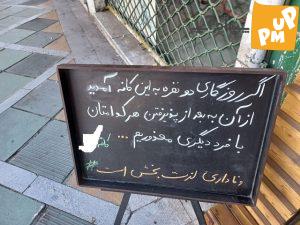 UP
PM
اگر روزگاری دو نفره به این کافه آمدید
از آن به بعد از پذیرفتن هر کدامتان
با فرد دیگری معذوریم ...
وفاداری لذت بخش است